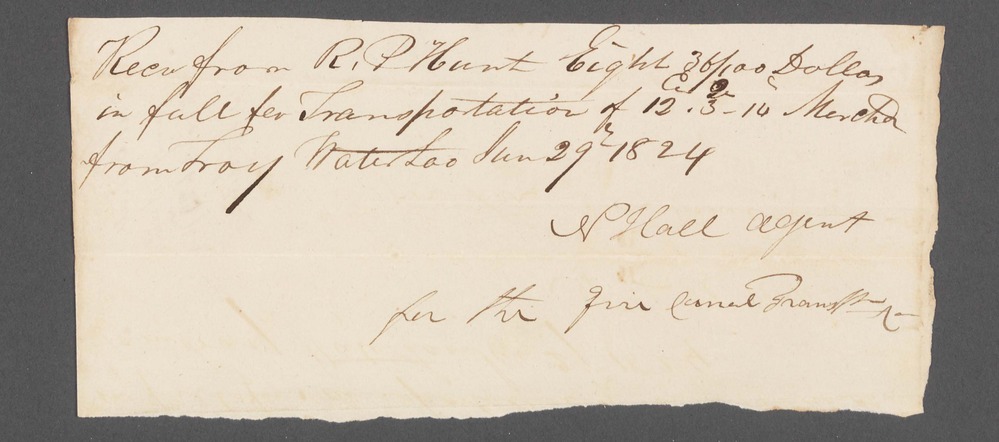 Recd from R. P Hunt Eight 36/100 Dollars
in full for Transportation of 12 . 3 - 14 Merchd
from Troy Waterloo Jun 29th 1824
N Hall agent
for the Erie Canal Transptn